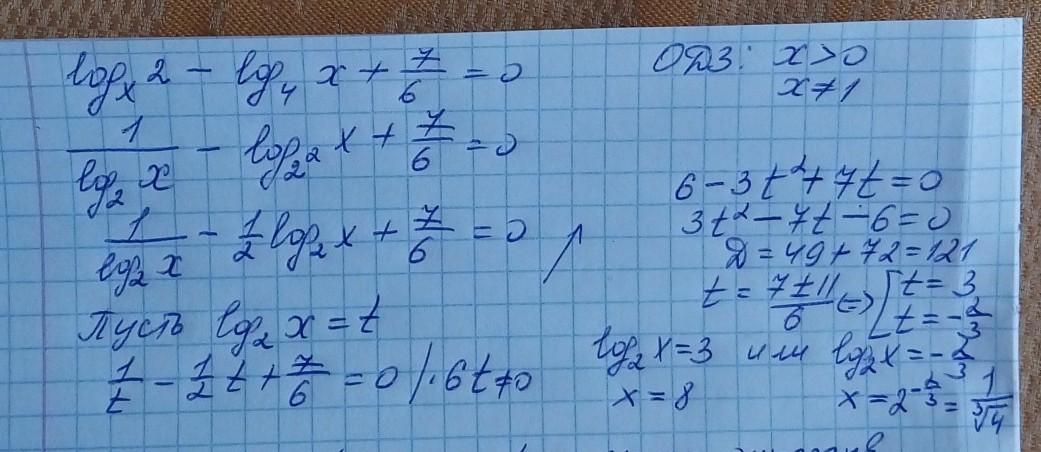 log_x 2 − log_4 x + 7/6 = 0
1/(log_2 x) − log_{2^2} x + 7/6 = 0
1/(log_2 x) − 1/2 log_2 x + 7/6 = 0
Пусть log_2 x = t
1/t − 1/2 t + 7/6 = 0 | · 6t ≠ 0
ОДЗ: x > 0
x ≠ 1
6 − 3t² + 7t = 0
3t² − 7t − 6 = 0
D = 49 + 72 = 121
t = (7 ± 11)/6 ⇔ [ t = 3
t = −2/3
log_2 x = 3 или log_2 x = −2/3
x = 8 x = 2^{−2/3} = 1/∛4